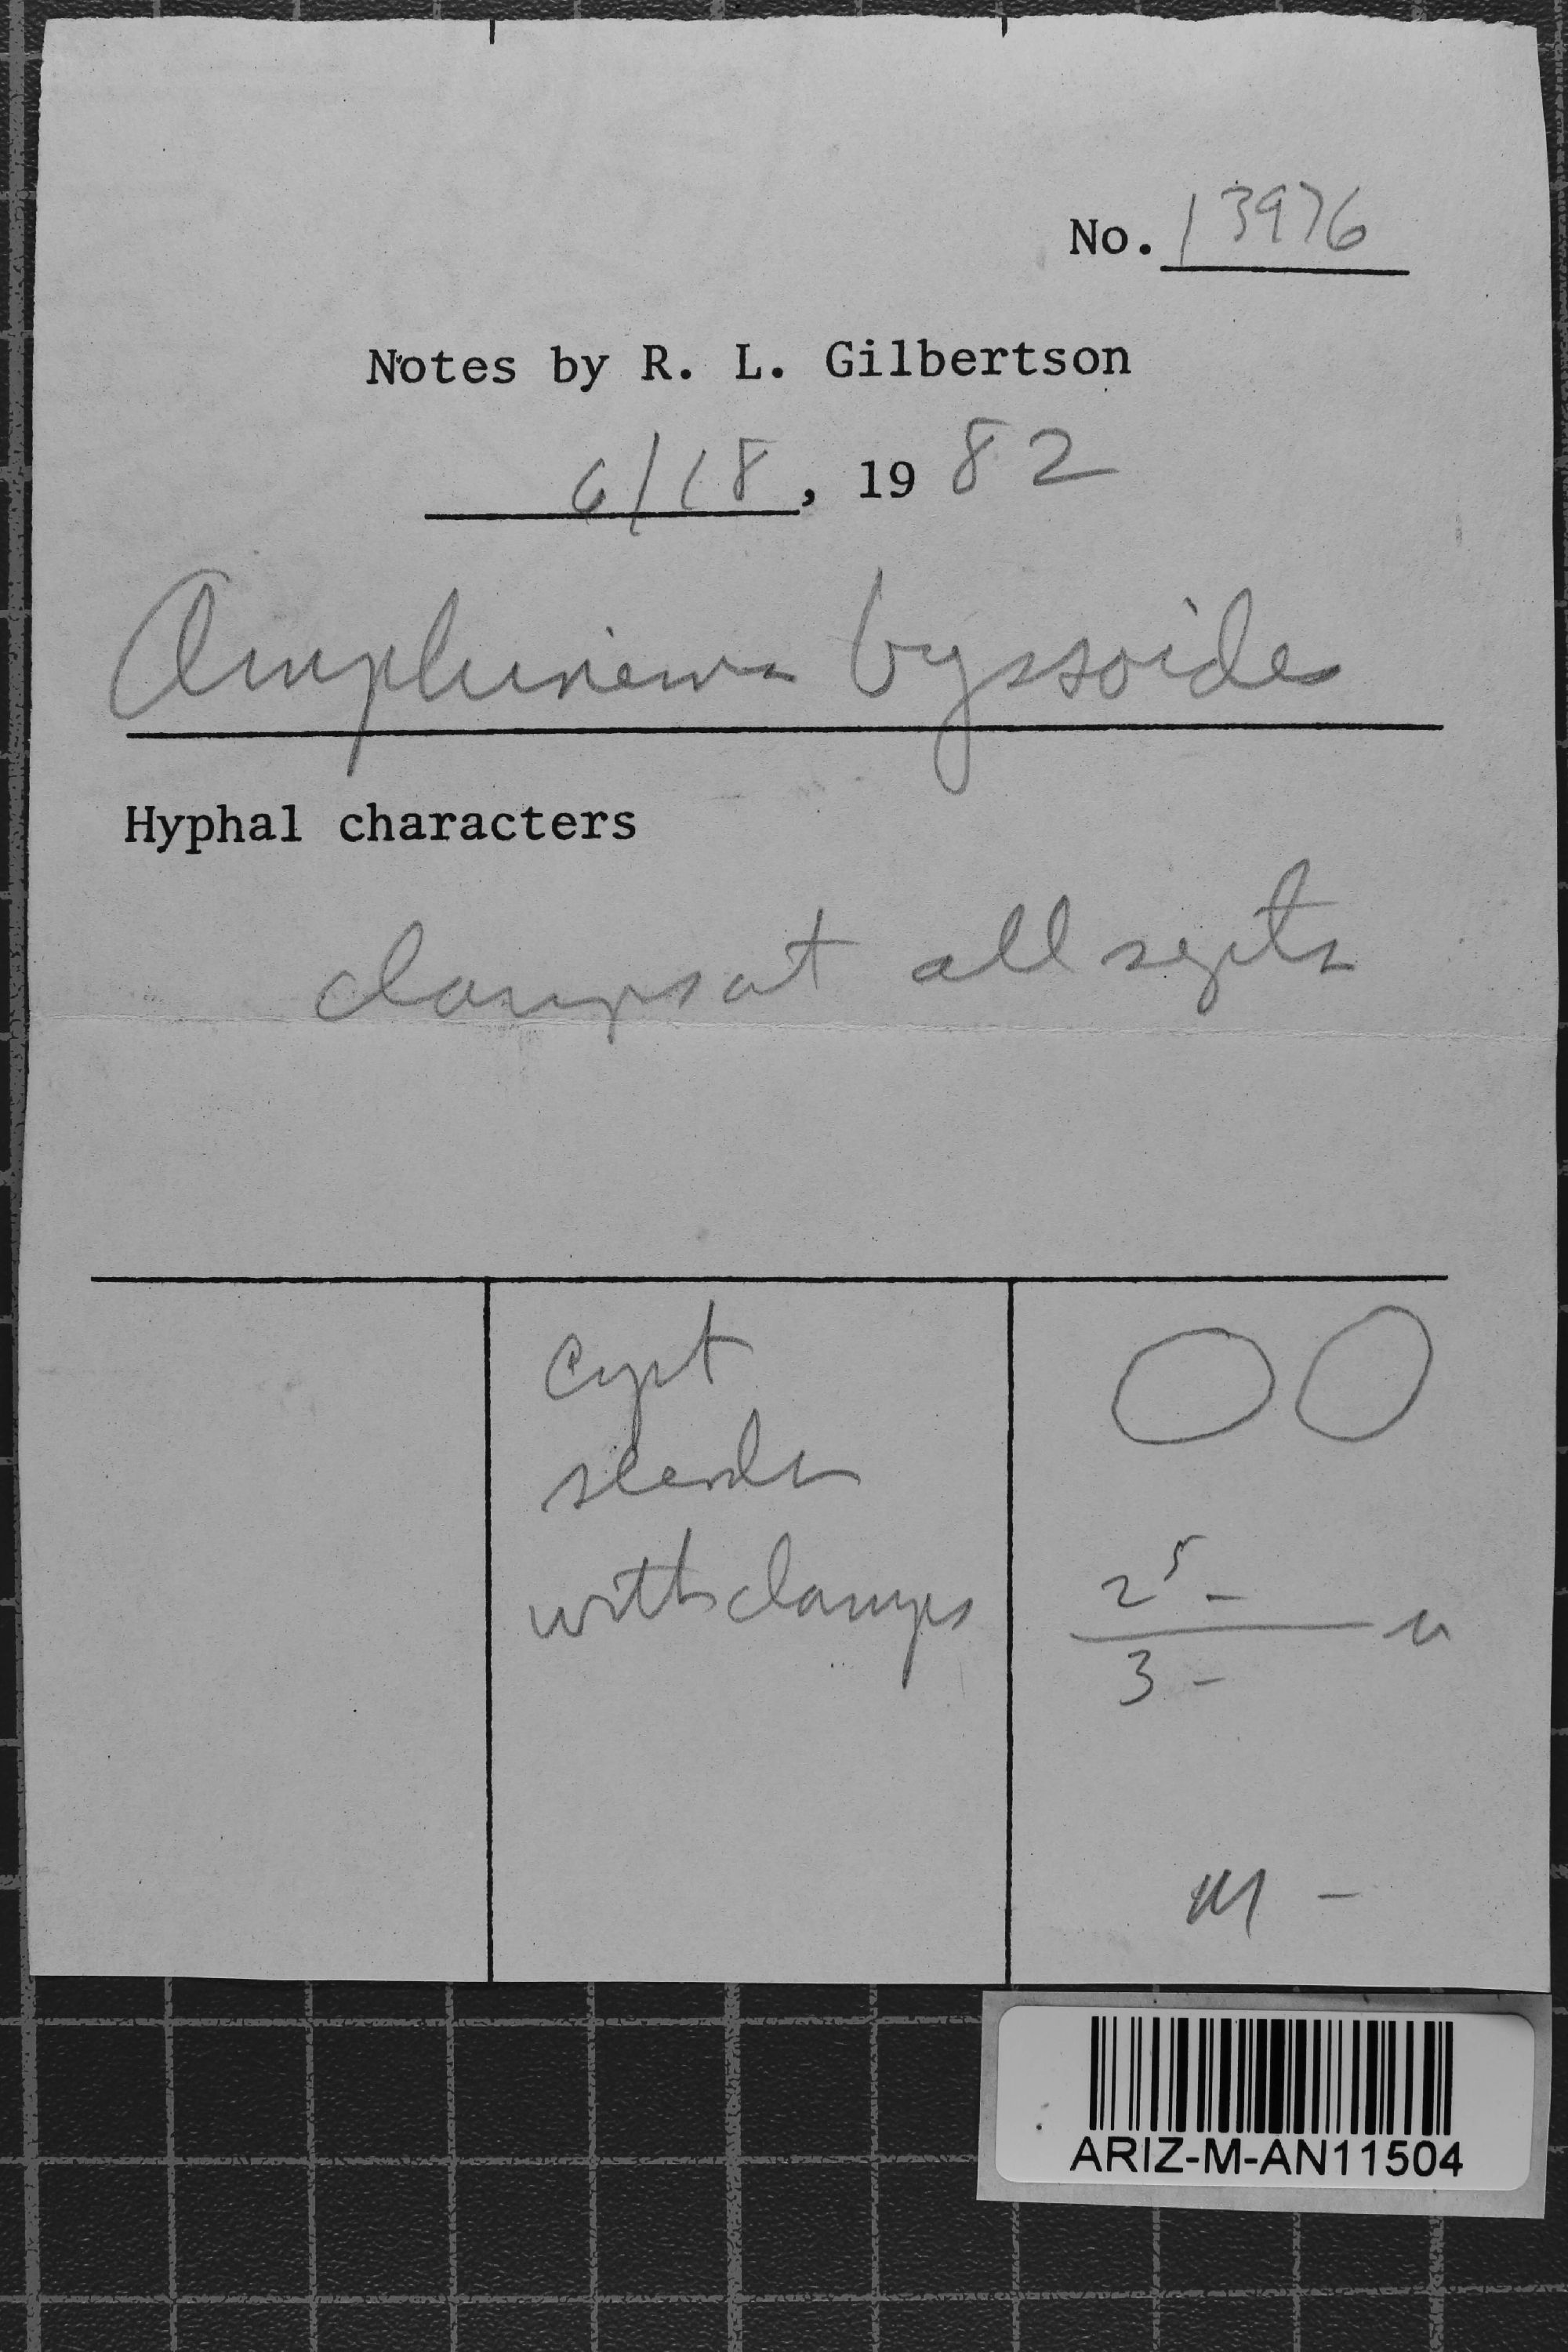 No. 13976
Notes by R. L. Gilbertson
6/18, 1982
Amphinema byssoides
Hyphal characters
clamps at all septa
cyst
slender
with clamps
2⁵ -
3 -
u
M -
ARIZ-M-AN11504